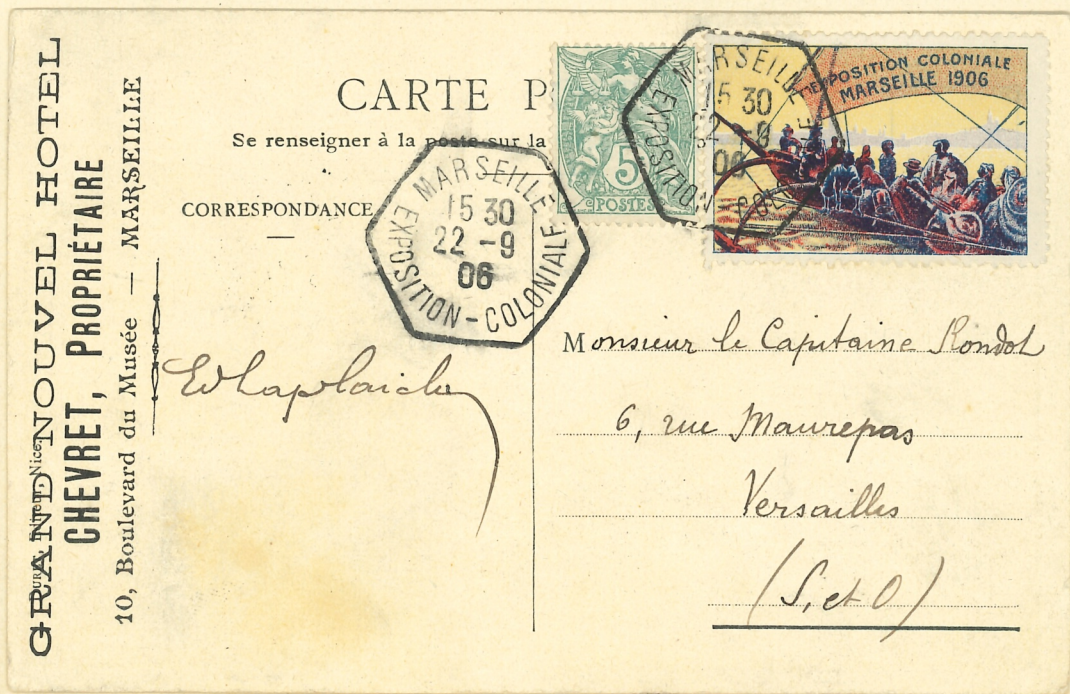 GRAND NOUVEL HOTEL
CHEVRET, PROPRIÉTAIRE
10, Boulevard du Musée — MARSEILLE
Nice
CARTE P
Se renseigner à la poste sur la
CORRESPONDANCE
5
POSTES
MARSEILLE
15 30
22 - 9
06
EXPOSITION - COLONIALE
MARSEILLE
15 30
22 - 9
06
EXPOSITION - COLONIALE
EXPOSITION COLONIALE
MARSEILLE 1906
Monsieur le Capitaine Rondot
6, rue Maurepas
Versailles
(S. et O)